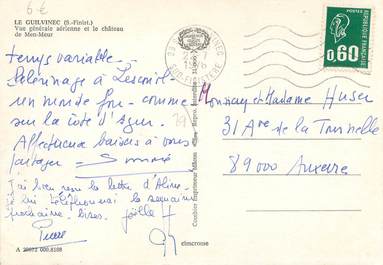 6 €
LE GUILVINEC (S.-Finist.)
Vue générale aérienne et le château
de Men-Meur
GUILVINEC
SUD-FINISTERE
0,60
temps variable -
Pelerinage à Lesconil -
un monde fou - comme
sur la côte d'Azur.
Affectueux baisers à vous
partager -
J'ai bien reçu la lettre d'Aline
je lui téléphonerai la semaine
prochaine. bises. Joëlle
Pierre
A 20072 000.8108
elmcrome
Combier Imprimeur Mâcon
Monsieur et Madame Huser
31 Av de la Tournelle
89000 Auxerre